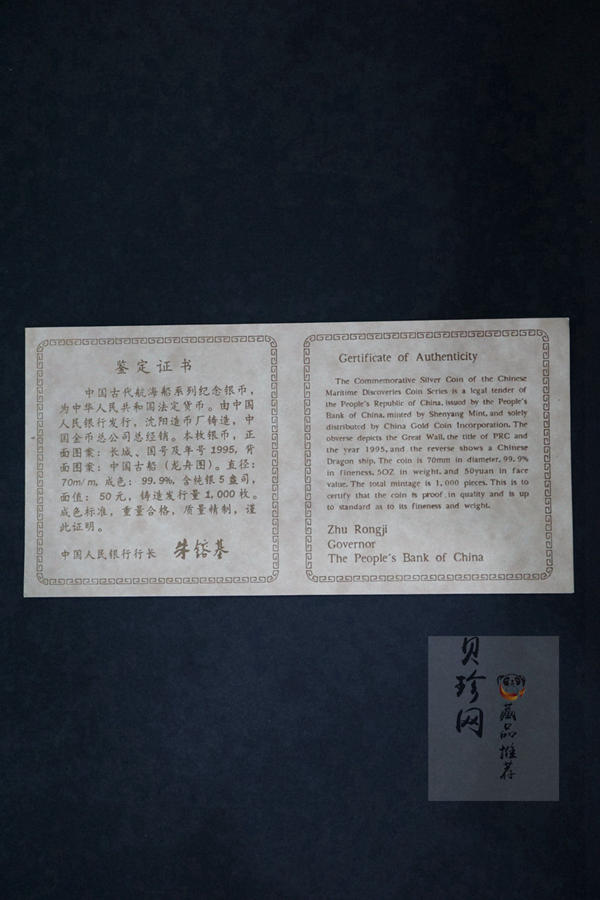 鉴定证书
中国古代航海船系列纪念银币，
为中华人民共和国法定货币。由中国
人民银行发行，沈阳造币厂铸造，中
国金币总公司总经销。本枚银币，正
面图案：长城、国号及年号1995，背
面图案：中国古船（龙舟图）。直径：
70m/m，成色：99.9%，含纯银5盎司，
面值：50元，铸造发行量1,000枚。
成色标准，重量合格，质量精制，谨
此证明。
中国人民银行行长 朱镕基
Certificate of Authenticity
The Commemorative Silver Coin of the Chinese
Maritime Discoveries Coin Series is a legal tender of
the People's Republic of China, issued by the People's
Bank of China, minted by Shenyang Mint, and solely
distributed by China Gold Coin Incorporation. The
obverse depicts the Great Wall, the title of PRC and
the year 1995, and the reverse shows a Chinese
Dragon ship. The coin is 70mm in diameter, 99.9%
in fineness, 5OZ in weight, and 50yuan in face
value. The total mintage is 1,000 pieces. This is to
certify that the coin is proof in quality and is up
to standard as to its fineness and weight.
Zhu Rongji
Governor
The People's Bank of China
贝珍网
藏品推荐